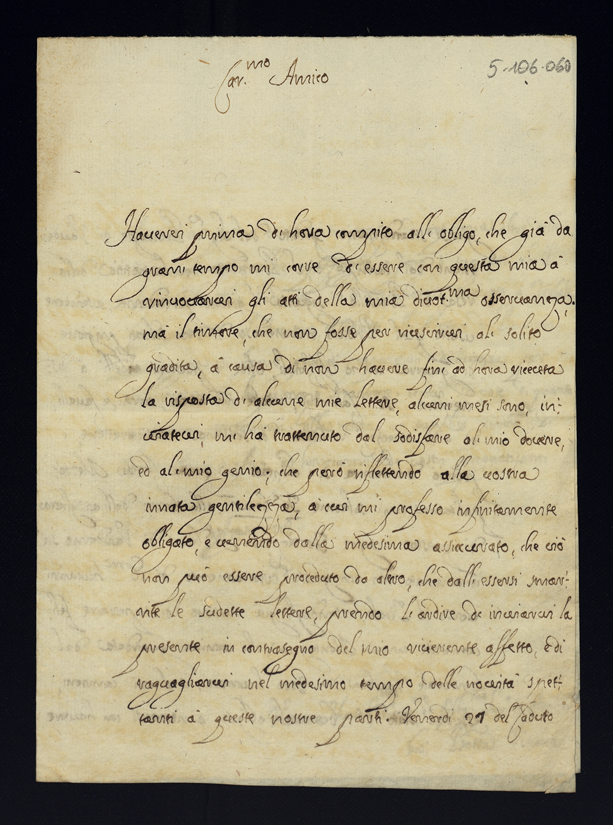 5-106-060
Car.mo Amico
Haverei prima di hora compito all'obligo, che già da
gran tempo mi corre di essere con questa mia à
rinuovarvi gli atti della mia divot.ma osservanza,
mà il timore, che non fosse per riuscirvi al solito
gradita, à causa di non havere fin ad hora riceuta
la risposta di alcune mie lettere, alcuni mesi sono, in-
viatevi, mi hà trattenuto dal sodisfare al mio dovere,
ed al mio genio; che però riflettendo alla vostra
innata gentilezza, à cui mi professo infinitamente
obligato, e venendo dalla medesima assicurato, che ciò
non può essere proceduto da altro, che dall'essersi smar-
rite le sudette lettere, prendo l'ardire de inviarvi la
presente in contrasegno del mio riverente affetto, e di
raguagliarvi nel medesimo tempo delle novità spet-
tanti à queste nostre parti. Venerdi 27 del Caduto